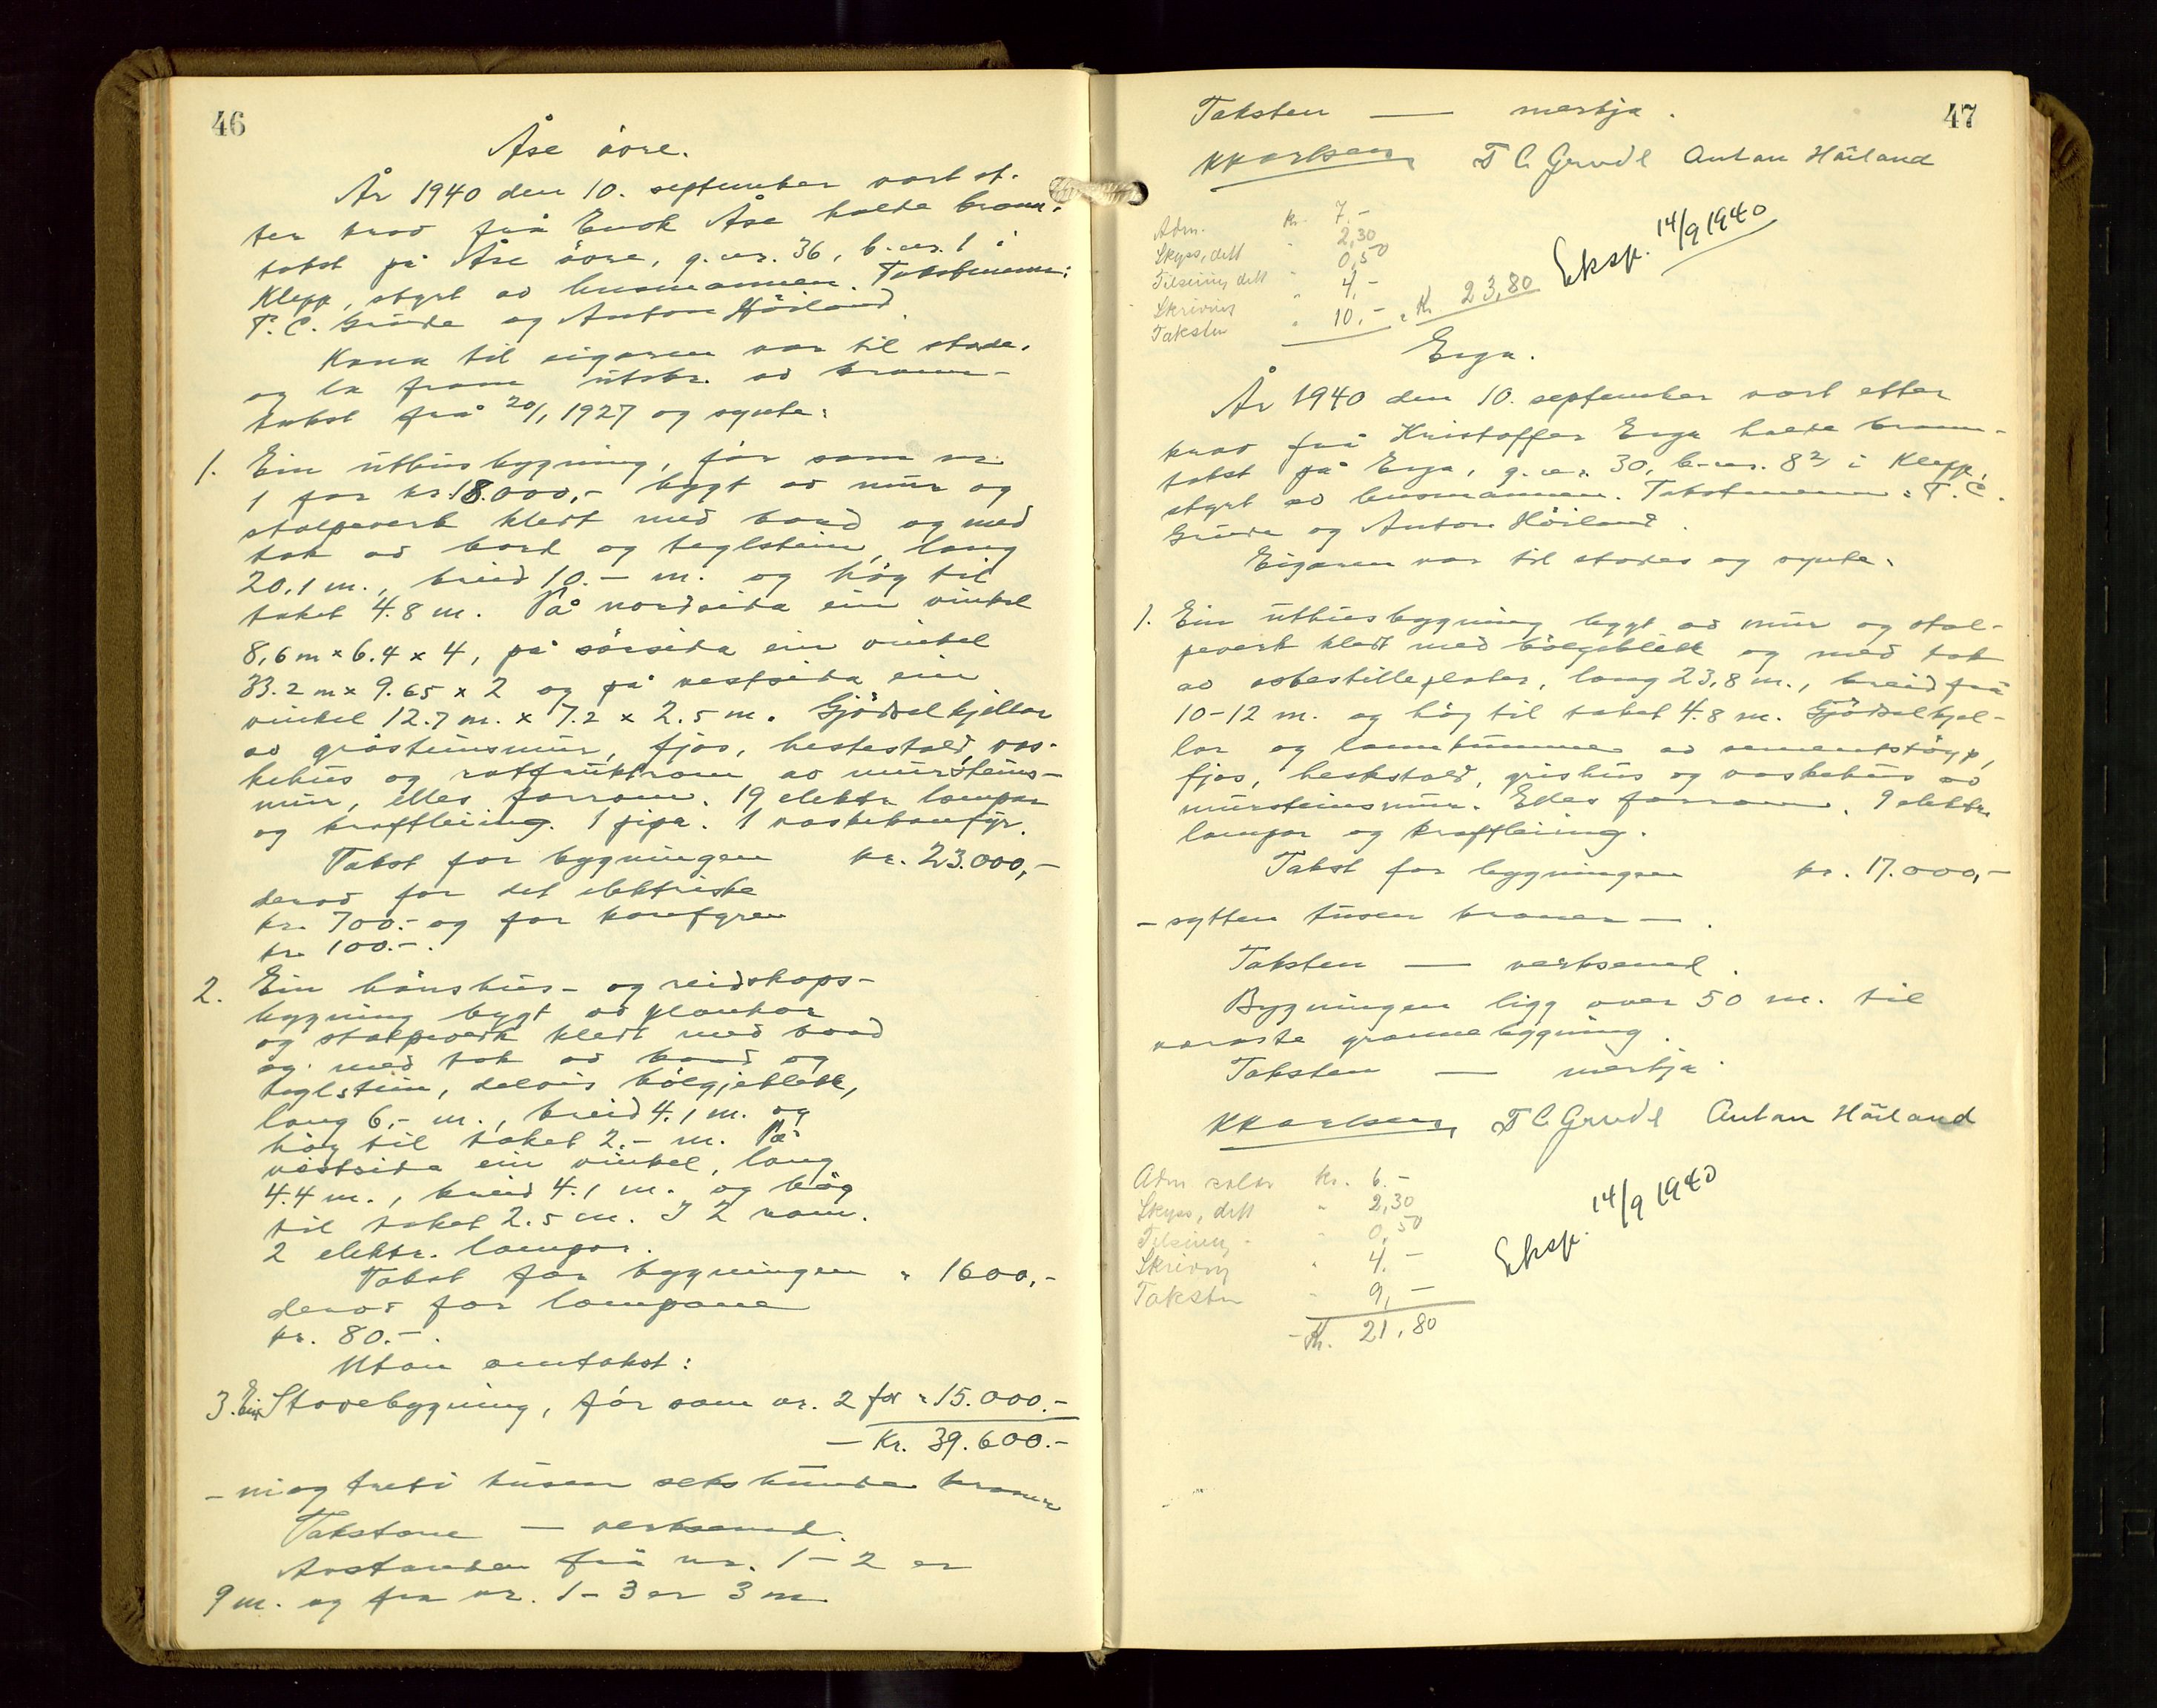 46
Åse øvre.
År 1940 den 10. september vart et-
ter krav frå Enok Åse halde brann-
takst på Åse øvre, g.nr. 36, b.nr. 1 i
Klepp, styrt av lensmannen. Takstmenn:
T. C. Grude og Anton Höiland.
Kona til eigaren var til stade,
og la fram utskr. av brann-
takst frå 20/1 1927 og synte:
1. Ein uthusbygning, för som nr.
1 for kr. 18.000,- bygt av mur og
stolpeverk kledt med bord og med
tak av bord og teglstein, lang
20,1 m., breid 10.- m. og høg til
taket 4.8 m. På nordsida ein vinkel
8,6 m x 6.4 x 4, på sørsida ein vinkel
33.2 m x 9.65 x 2 og på vestsida ein
vinkel 12.7 m. x 7.2 x 2.5 m. Gjödselkjellar
av gråsteinsmur, fjos, hestestald, vas-
kehus og rotfruktrom av mursteins-
mur, elles forrom. 19 elektr. lampor
og kraftleiing. 1 pipa. 1 vaskekomfyr.
Takst for bygningen kr. 23.000,-
derav for det elektriske
kr. 700.- og for komfyren
kr. 100.-.
2. Ein hönshus- og reidskaps-
bygning bygt av plankar
og stolpeverk kledt med bord
og med tak av bord og
teglstein, delvis bölgjeblekk,
lang 6,- m., breid 4.1 m. og
høg til taket 2.- m. På
vestsida ein vinkel, lang
4.4 m., breid 4.1 m. og høg
til taket 2.5 m. I 2 rom.
2 elektr. lampor.
Takst for bygningen " 1600,-
derav for lampone
kr. 80.-.
Utan omtakst:
3. Ein Stovebygning, för som nr. 2 for " 15.000.-
- Kr. 39.600.-
- niogtreti tusen sekshundre kroner
Takstane — verksemd.
Avstanden frå nr. 1 - 2 er
9 m. og frå nr. 1 - 3 er 3 m
47
Taksten — merkja.
KKarlsen T C Grude Anton Höiland
Adm. kr. 7.-
Skyss, dett " 2,30
Tilseiing dett " 0,50
Skriving " 4,-
Taksten " 10,- = Kr 23,80
Eksp. 14/9 1940
Erga.
År 1940 den 10. september vart etter
krav frå Kristoffer Erga halde brann-
takst på Erga, g.nr. 30, b.nr. 82, i Klepp,
styrt av lensmannen. Takstmenn: T. C.
Grude og Anton Höiland.
Eigaren var til stades og synte:
1. Ein uthusbygning bygt av mur og stol-
peverk kledt med bölgeblekk og med tak
av asbestilleplater, lang 23,8 m., breid frå
10-12 m. og høg til taket 4.8 m. Gjödselkjel-
lar og landkummer av sementstöyp,
fjos, heststald, grishus og vaskehus av
mursteinsmur. Elles forrom. 9 elektr.
lampor og kraftleiing.
Takst for bygningen kr. 17.000,-
- sytten tusen kroner -.
Taksten — verksemd.
Bygningen ligg over 50 m. til
næraste grannebygning.
Taksten — merkja.
KKarlsen T C Grude Anton Höiland
Adm salær kr. 6.-
Skyss, dett " 2,30
Tilseiing " " 0,50
Skriving " 4.-
Taksten " 9,-
- Kr. 21,80
Eksp. 14/9 1940